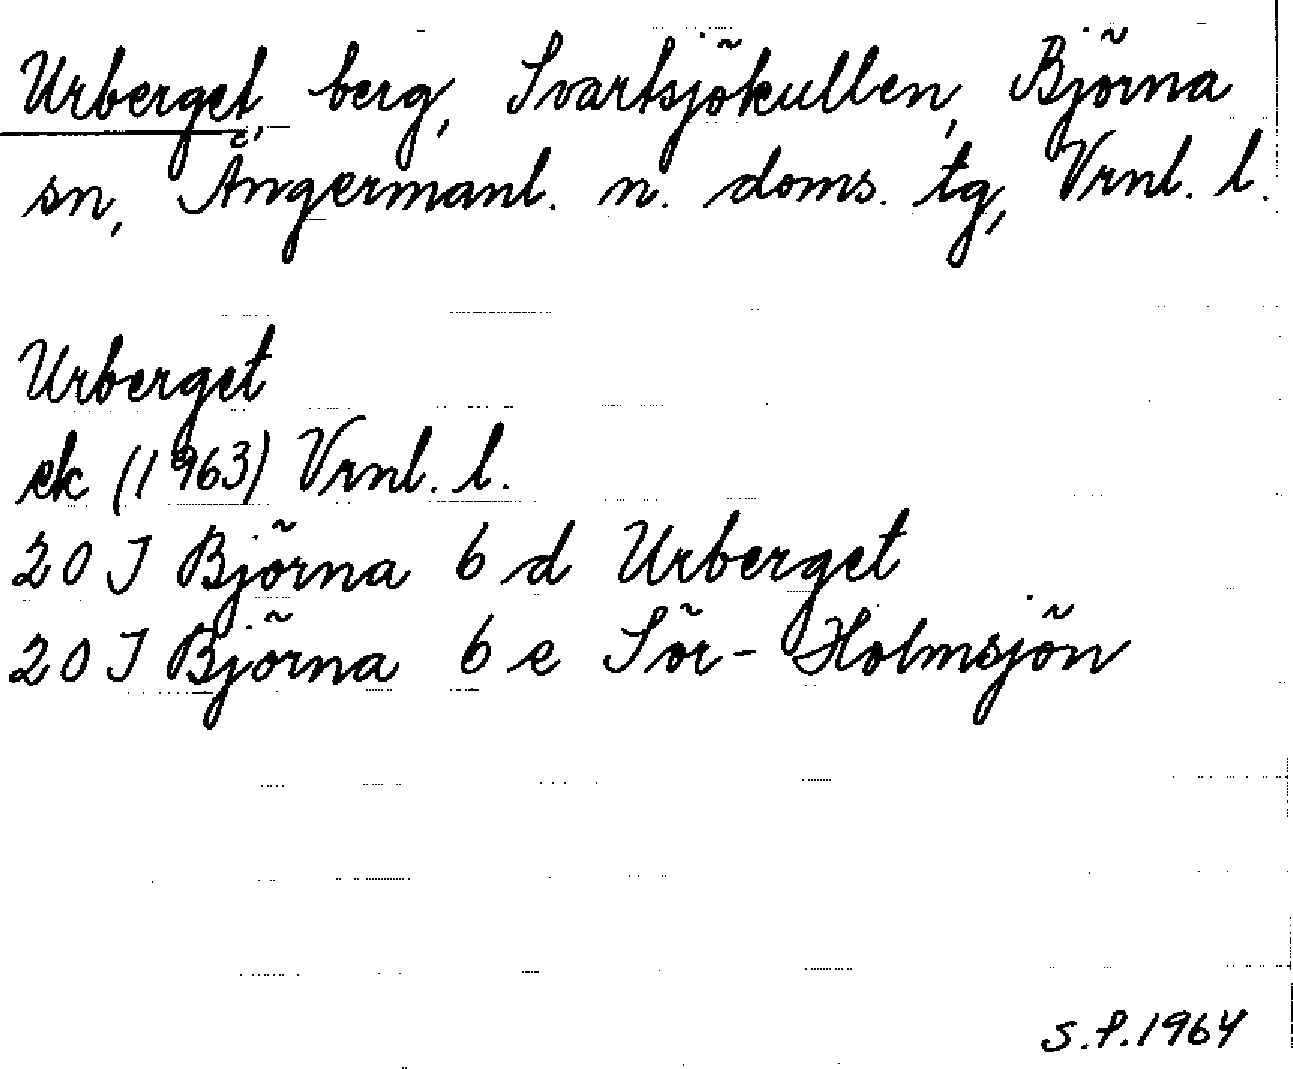 Urberget, berg, Svartsjökullen, Björna
sn, Ångermanl. n. doms. tg, Vrnl. l.
Urberget
ek (1963) Vrnl. l.
20 J Björna 6 d Urberget
20 J Björna 6 e Sör-Holmsjön
S.P.1964